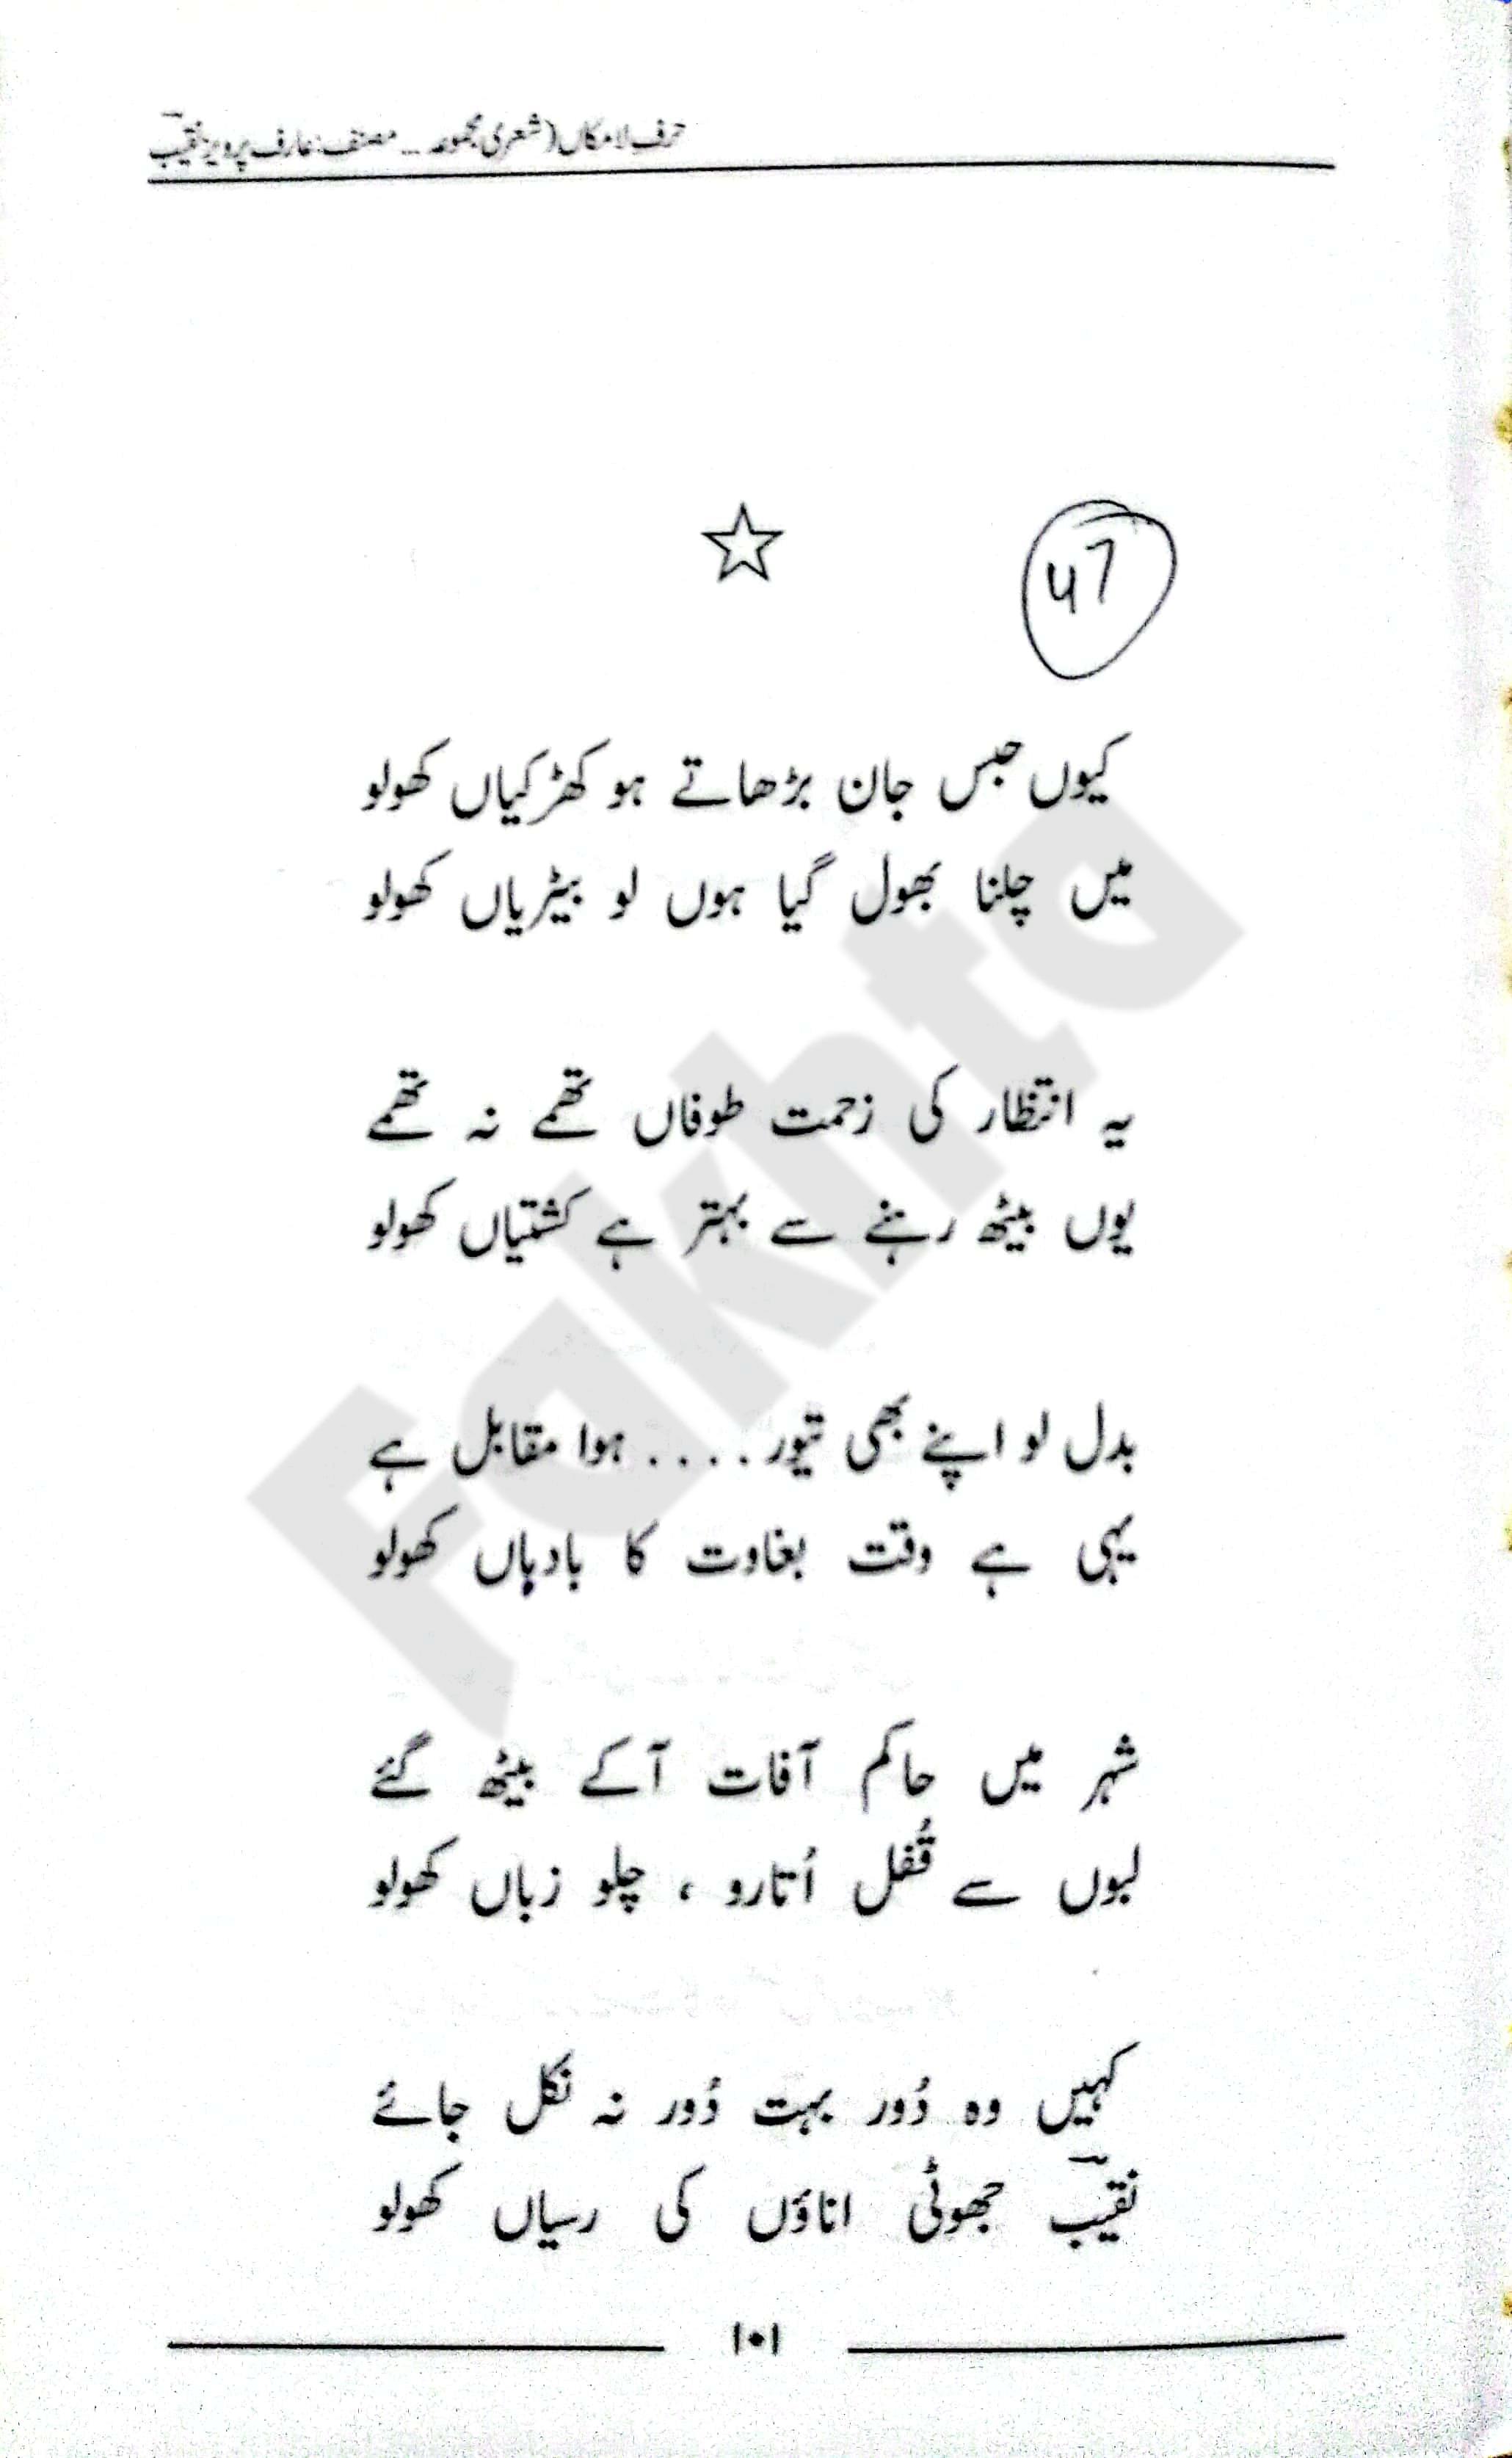 حرفِ لامکاں (شعری مجموعہ ... مصنف: عارف پرویز نقیبؔ
47
کیوں حبس جان بڑھاتے ہو کھڑکیاں کھولو
میں چلنا بھول گیا ہوں لو بیڑیاں کھولو
یہ انتظار کی زحمت طوفاں تھمے نہ تھمے
یوں بیٹھ رہنے سے بہتر ہے کشتیاں کھولو
بدل لو اپنے بھی تیور .... ہوا مقابل ہے
یہی ہے وقت بغاوت کا بادباں کھولو
شہر میں حاکم آفات آ کے بیٹھ گئے
لبوں سے قُفل اُتارو ، چلو زباں کھولو
کہیں وہ دُور بہت دُور نہ نکل جائے
نقیبؔ جھوٹی اناؤں کی رسیاں کھولو
۱۰۱
Fakhta